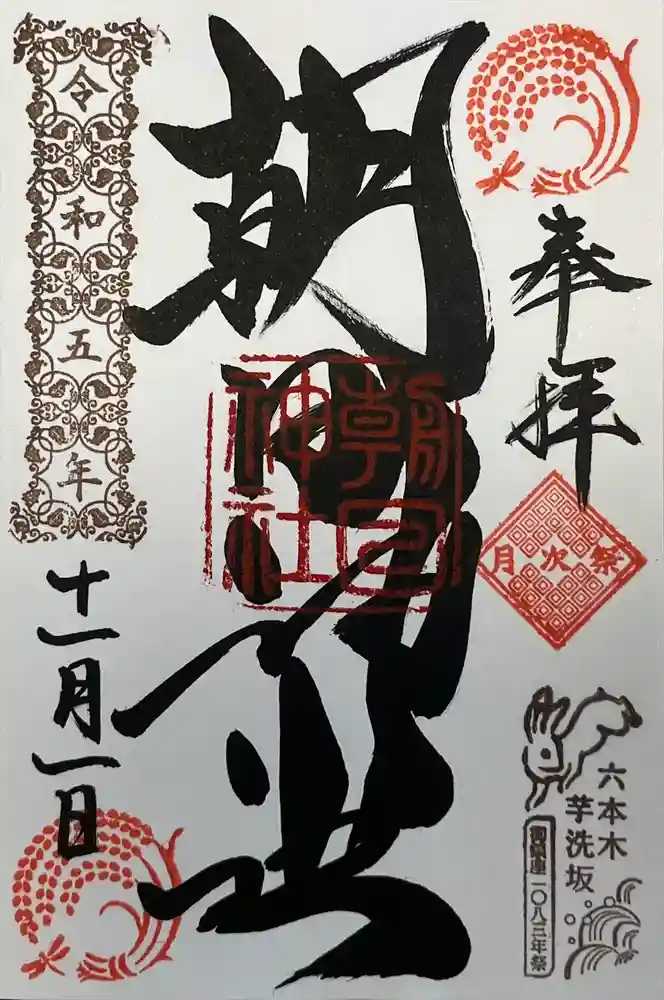 奉拝
月次祭
六本木
芋洗坂
御鎮座一〇八三年祭
朝日神社
朝日神社
令和五年
十一月一日